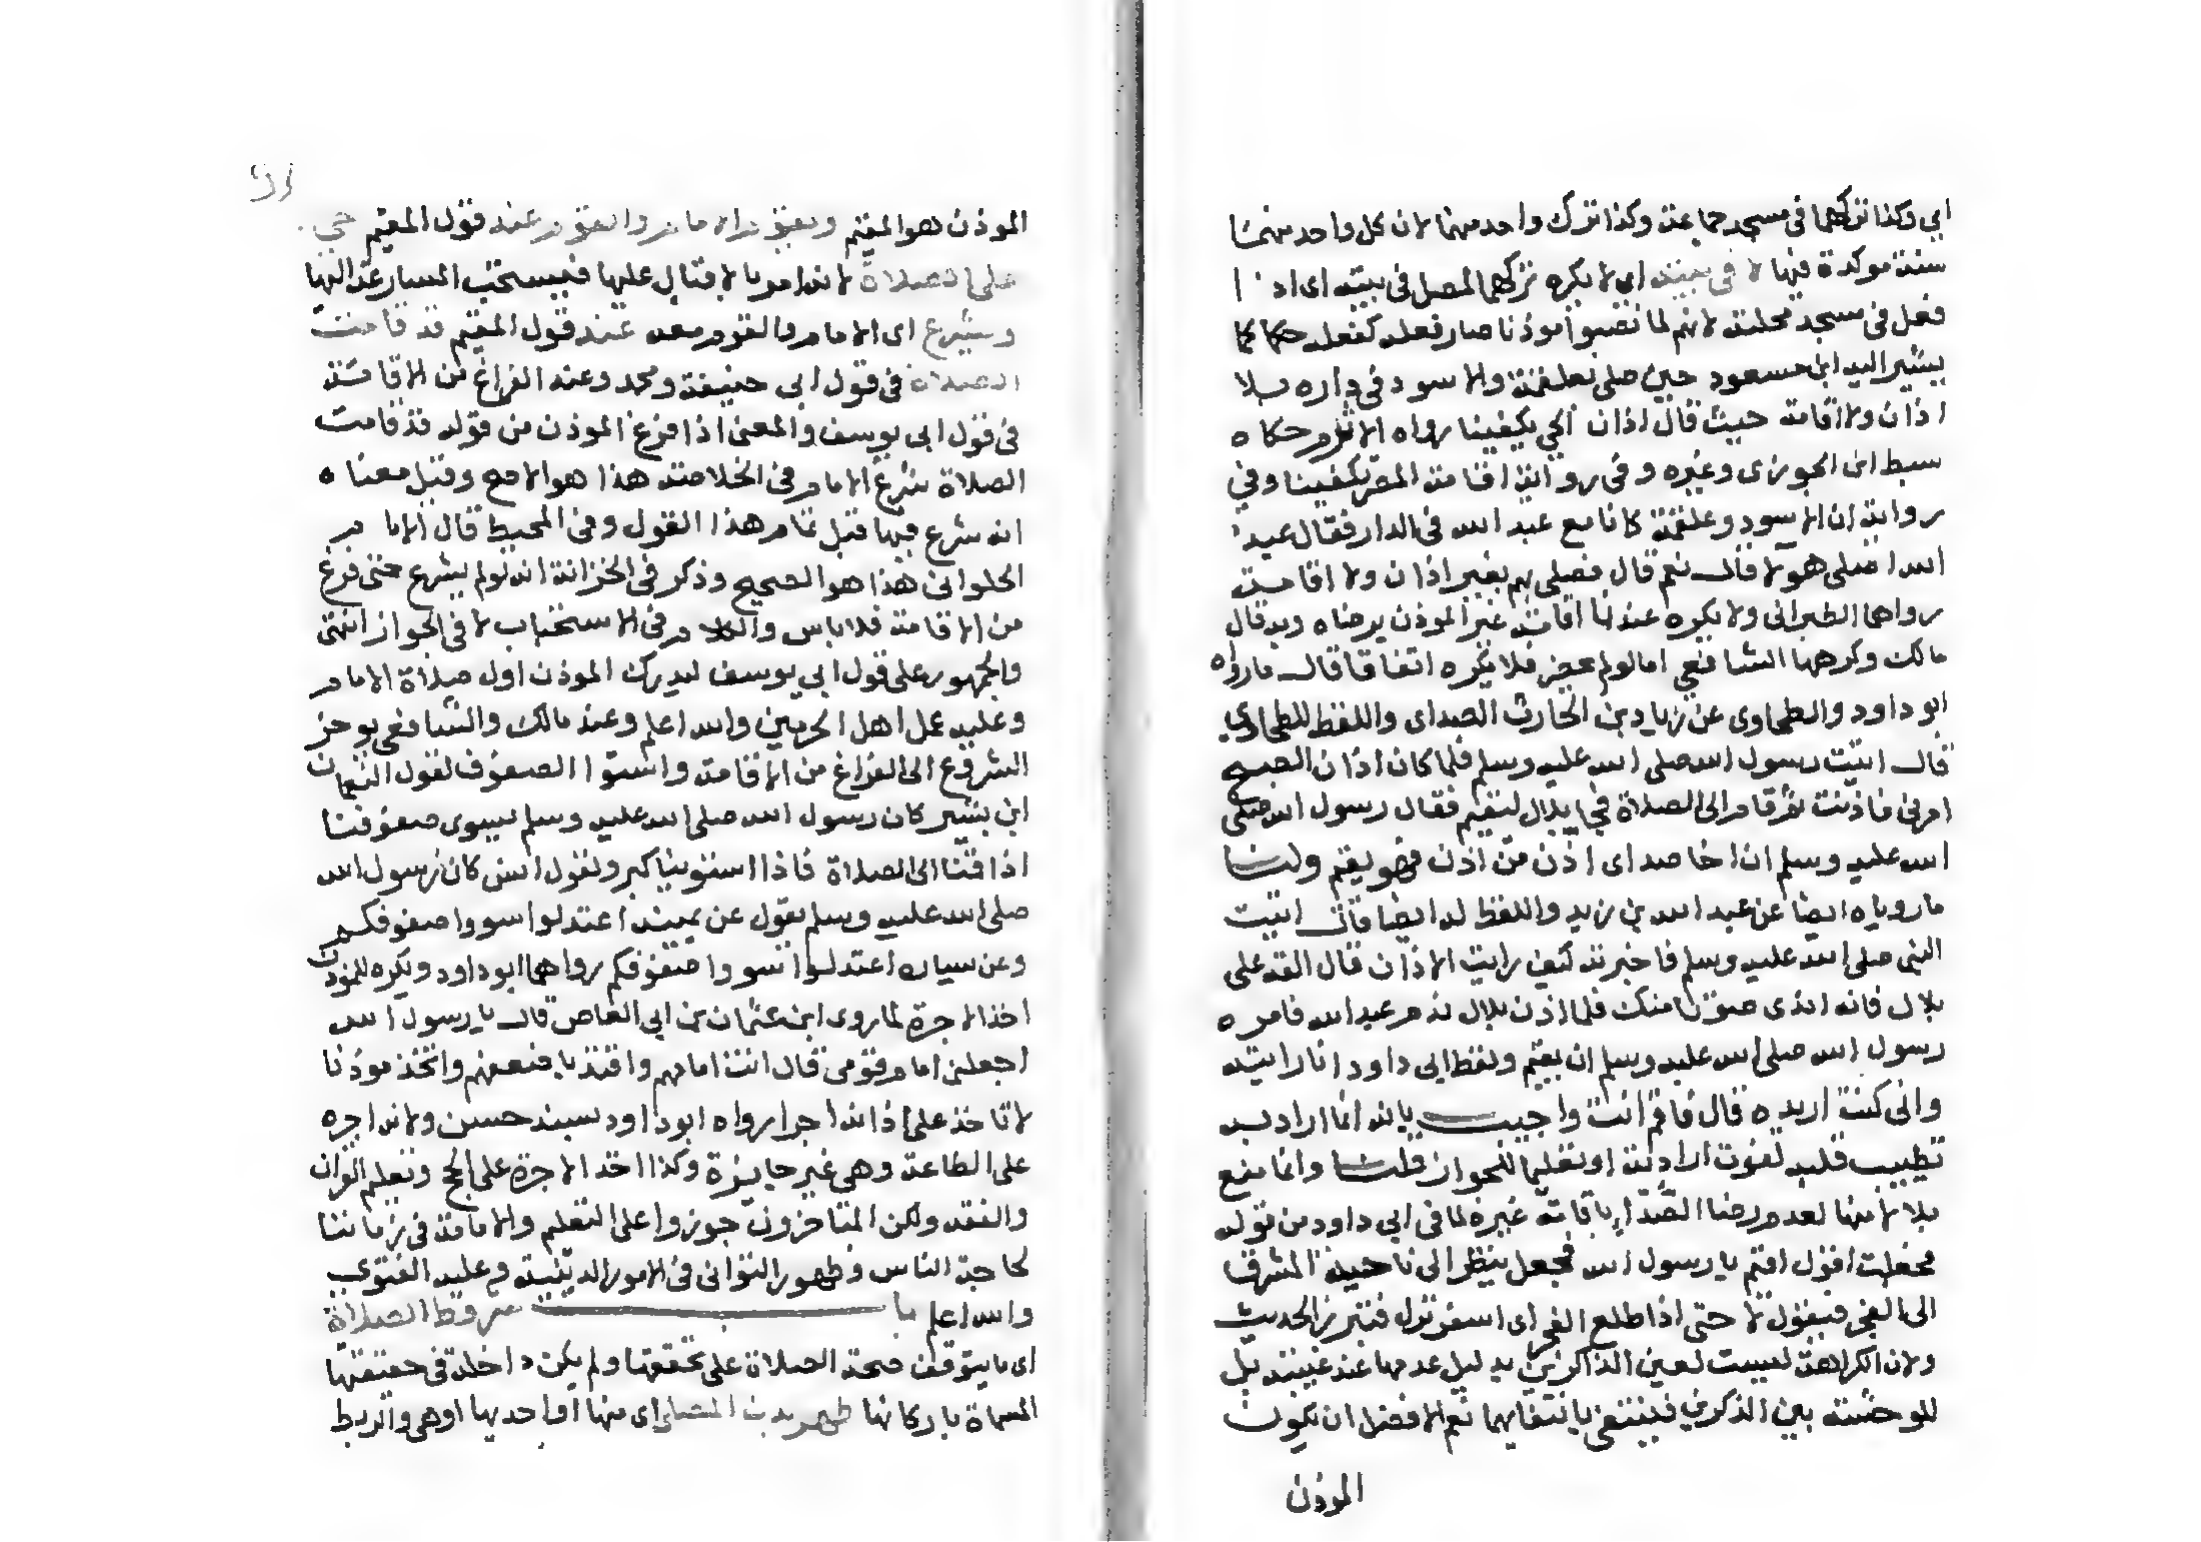 اي وكذا تركهما في مسجد جماعة وكذا ترك واحد منهما لان كل واحد منهما
سنة موكدة فيها لا في بيته اي لا يكره تركهما لمصل في بيته اي اذا
فعل في مسجد محلته لانهم لما نصبوا موذنا صار فعله كفعلهم حكا كما
يشير اليه ابن مسعود حين صلى بعلقمة والاسود في داره بلا
اذان ولا اقامة حيث قال اذان الحي يكفينا رواه الاثرم حكاه
سبط ابن الجوزي وغيره وفي رواية اقامة المصر تكفينا وفي
رواية ان الاسود وعلقمة كانا مع عبد الله في الدار فقال عبد
الله اصلى هولا قال نعم قال فصلى بهم بغير اذان ولا اقامة
رواهما الطبراني ولا يكره عندنا اقامة غير الموذن برضاه وبه قال
مالك وكرهها الشافعي اما لو لم يحضر فلا يكره اتفاقا قال ما رواه
ابو داود والطحاوي عن زياد بن الحارث الصداي واللفظ للطحاوي
قال اتيت رسول الله صلى الله عليه وسلم فلما كان اذان الصبح
امرني فاذنت ثم قام الى الصلاة فجا بلال ليقيم فقال رسول الله صلى
الله عليه وسلم ان اخا صداي اذن من اذن فهو يقيم ولنا
ما روياه ايضا عن عبد الله بن زيد واللفظ له ايضا قال اتيت
النبي صلى الله عليه وسلم فاخبرته كيف رايت الاذان قال القه على
بلال فانه اندى صوتا منك فلما اذن بلال ندم عبد الله فامره
رسول الله صلى الله عليه وسلم ان يقيم ولفظ ابي داود انا رايته
واني كنت اريده قال فاقم انت واجيب بانه انما اراد به
تطييب قلبه لفوت ارادته او تعليما للجواز قلنا وانما منع
بلالا منها لعدم رضا الصداي باقامة غيره لما في ابي داود من قوله
فجعلت اقول اقيم يا رسول الله فجعل ينظر الى ناحية المشرق
الى الفجر فيقول لا حتى اذا طلع الفجر اي اسفر نزل فتبرز الحديث
ولان الكراهة ليست لعين الذاكرين بدليل عدمها عند غيبته بل
للوحشة بين الذكرين فينتفي بانتفايهما نعم الافضل ان يكون
الموذن
الموذن هو المقيم ويقوم الامام والقوم عند قول المقيم حي
على الصلاة لانه امر بالاقبال عليها فيستحب المسارعة اليها
ويشرع اي الامام والقوم معه عند قول المقيم قد قامت
الصلاة في قول ابي حنيفة ومحمد وعند الفراغ من الاقامة
في قول ابي يوسف والمعنى اذا فرغ الموذن من قوله قد قامت
الصلاة شرع الامام وفي الخلاصة هذا هو الاصح وقيل معناه
انه شرع فيها قبل تمام هذا القول وفي المحيط قال الامام
الحلواني هذا هو الصحيح وذكر في الخزانة انه لو لم يشرع حتى فرغ
من الاقامة فلا باس والكلام في الاستحباب لا في الجواز انتهى
والجمهور على قول ابي يوسف ليدرك الموذن اول صلاة الامام
وعليه عمل اهل الحرمين والله اعلم وعند مالك والشافعي يوخر
الشروع الى الفراغ من الاقامة واستوا الصفوف لقول النعمان
ابن بشير كان رسول الله صلى الله عليه وسلم يسوي صفوفنا
اذا قمنا الى الصلاة فاذا استوينا كبر ولقول انس كان رسول الله
صلى الله عليه وسلم يقول عن يمينه اعتدلوا سووا صفوفكم
وعن يساره اعتدلوا سووا صفوفكم رواهما ابو داود ويكره للموذن
اخذ الاجرة لما روى ابن عثمان بن ابي العاص قال يا رسول الله
اجعلني امام قومي قال انت امامهم واقتد باضعفهم واتخذ موذنا
لا تاخذ على اذانه اجرا رواه ابو داود بسند حسن ولانه اجره
على الطاعة وهي غير جايزة وكذا اخذ الاجرة على الحج وتعليم القران
والفقه ولكن المتاخرون جوزوا على التعليم والامامة في زماننا
لحاجة الناس وظهور التواني في الامور الدينية وعليه الفتوى
والله اعلم باب شروط الصلاة
اي ما يتوقف صحة الصلاة على تحققها ولم يكن داخلة في حقيقتها
المسماة باركانها طهر بدن المصلي اي منها او احديها او هي والربط